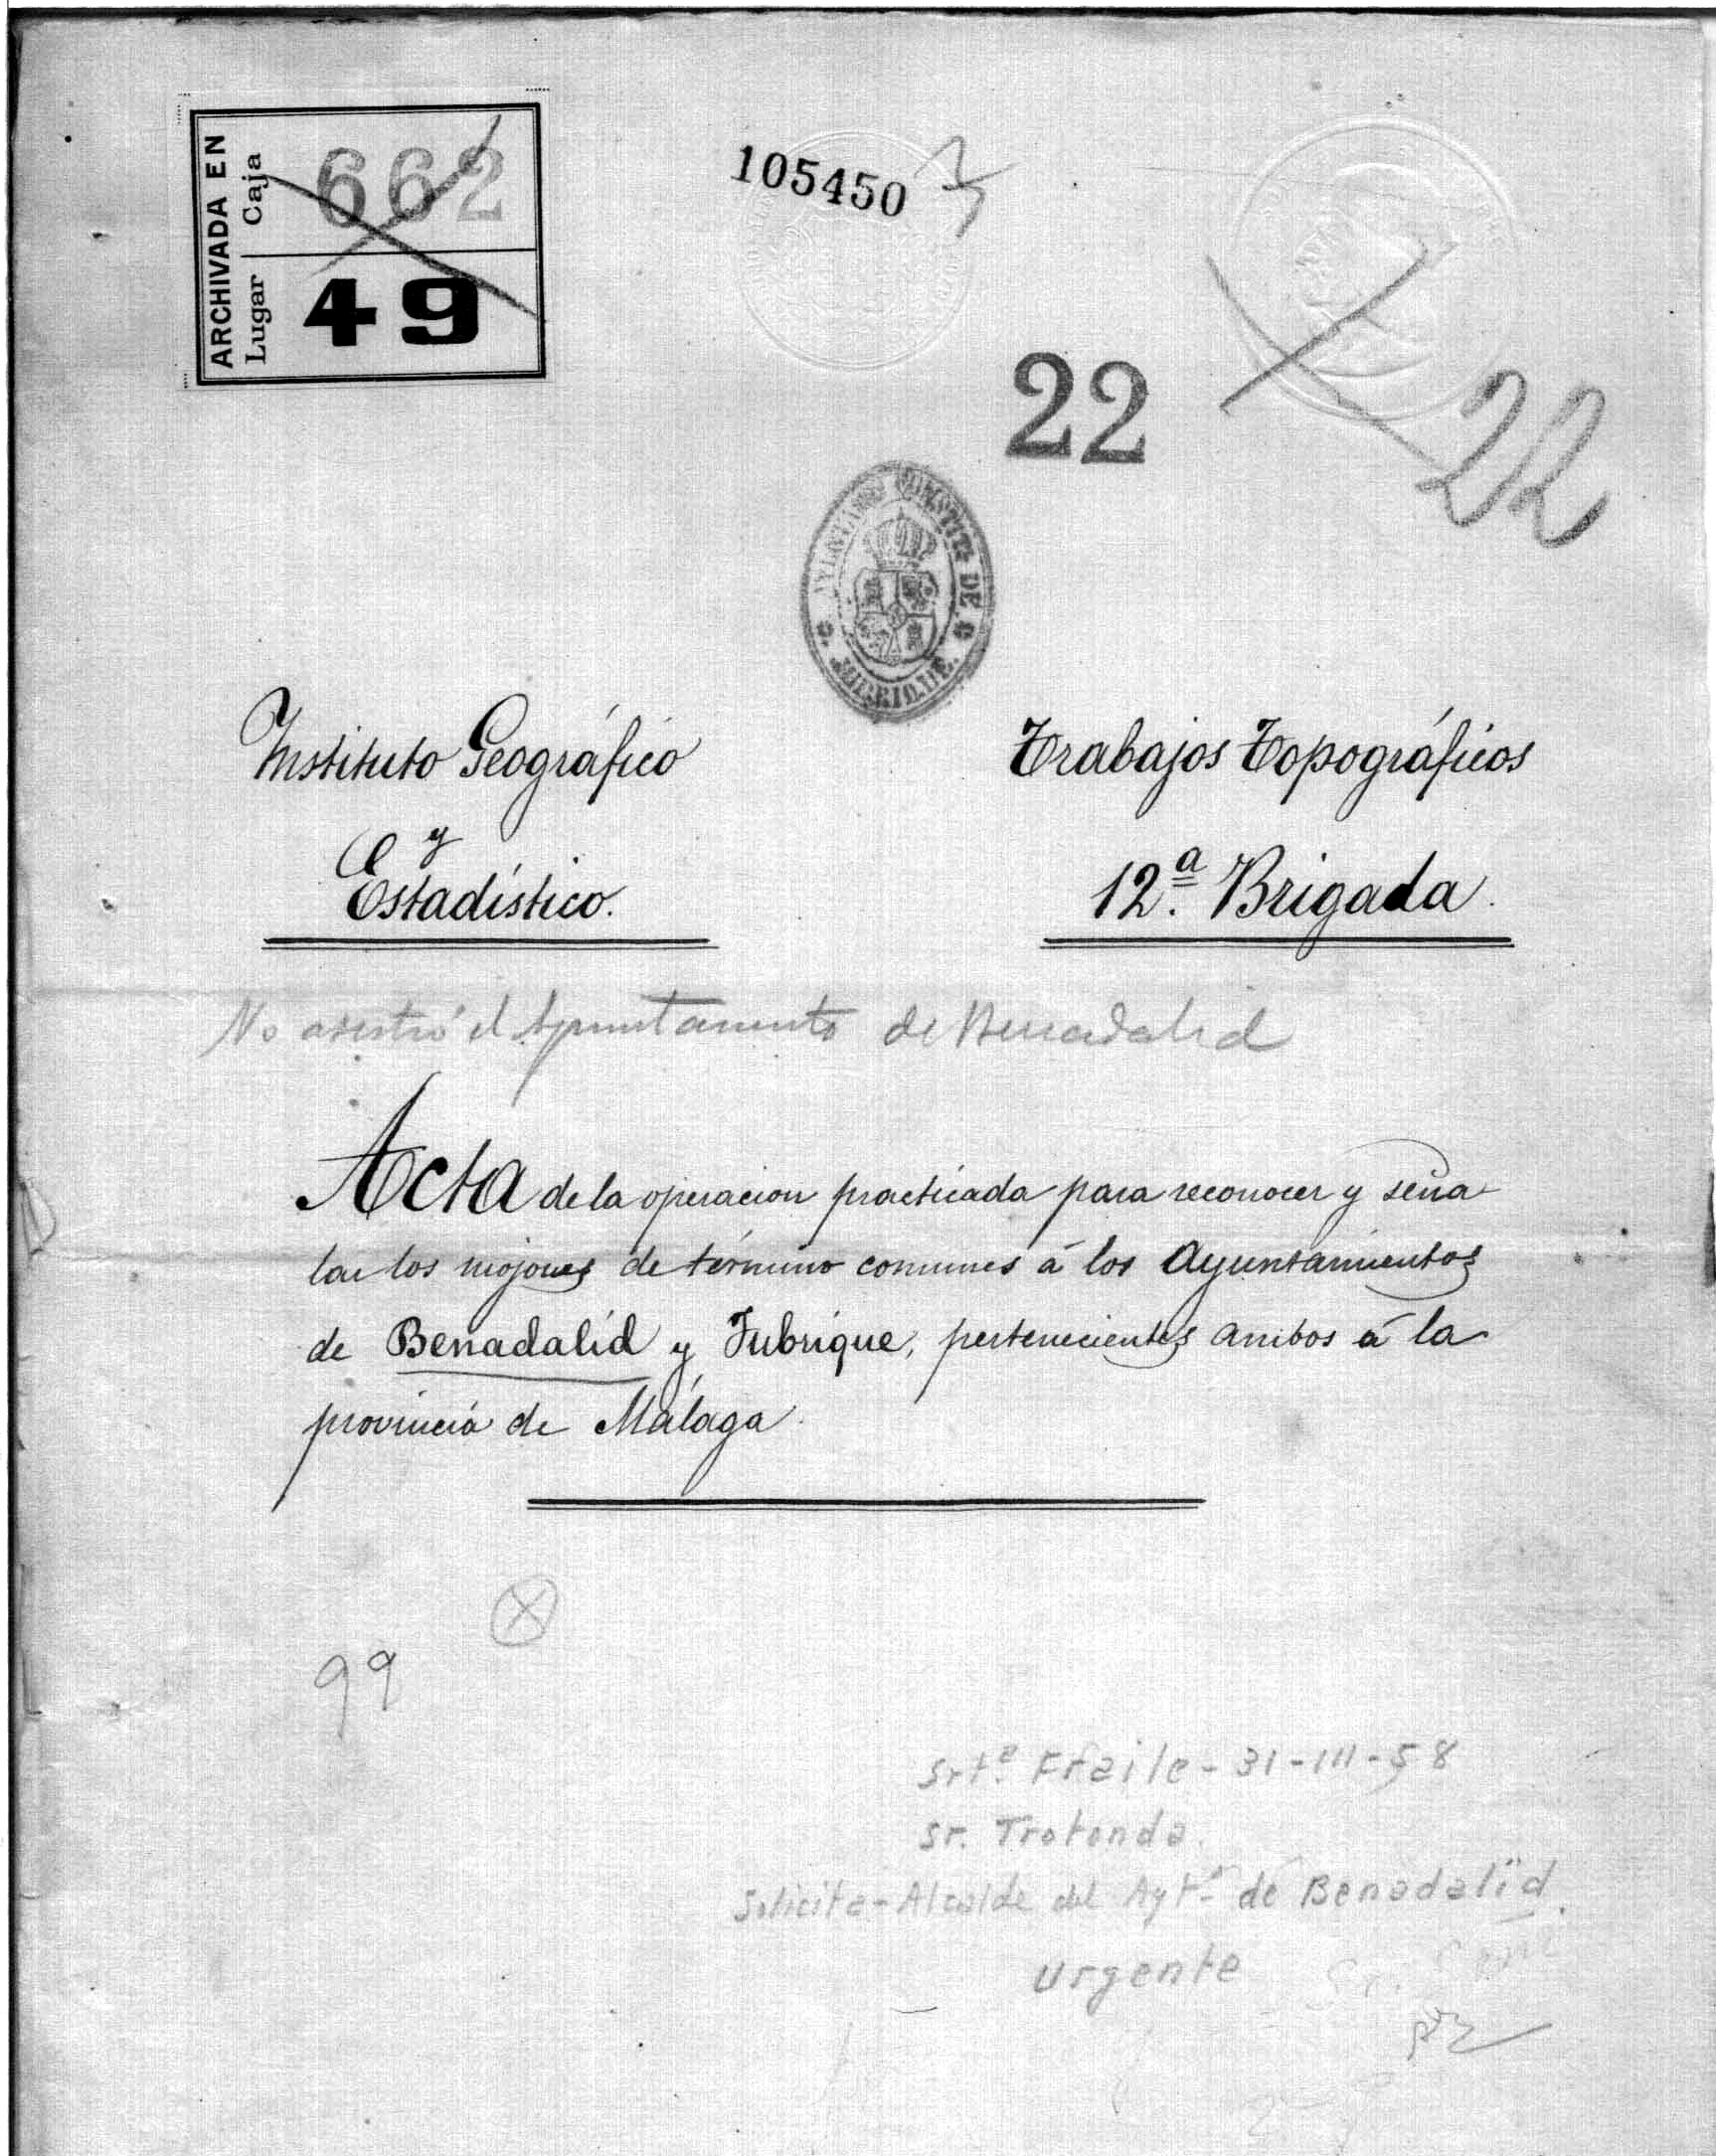 ARCHIVADA EN
Caja 662
Lugar 49
105450
22
22
AYUNTAMIENTO CONSTITL. DE
JUBRIQUE
Instituto Geográfico
y
Estadístico.
Trabajos Topográficos
12.ª Brigada.
No asistió el Ayuntamiento de Benadalid
Acta de la operacion practicada para reconocer y seña
lar los mojones de término comunes á los Ayuntamientos
de Benadalid y Jubrique, pertenecientes ambos á la
provincia de Málaga.
99
Srtª Fraile - 31-III-58
Sr. Trotonda.
Solicita - Alcalde del Aytº de Benadalid.
Urgente